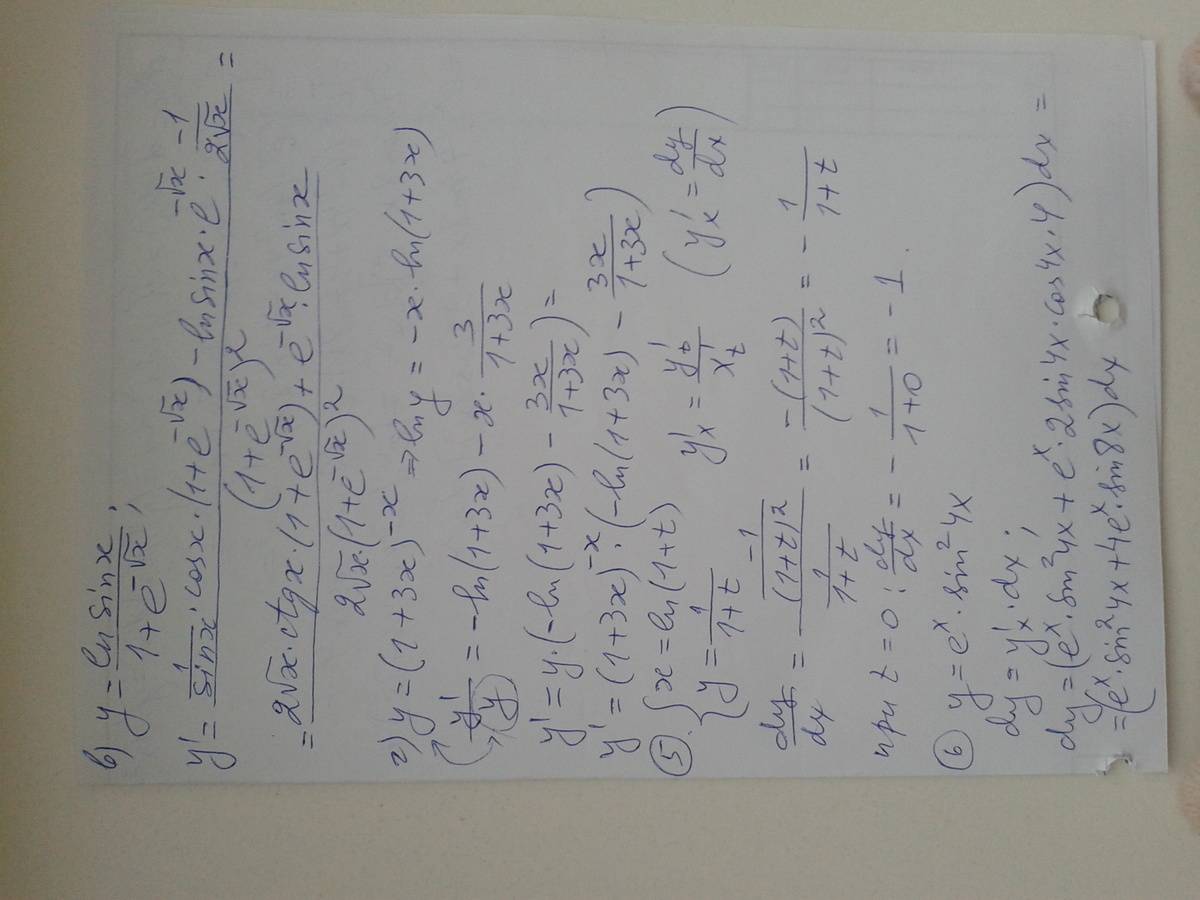 в) y = ln sinx / (1+e^(-√x)) ;
y' = (1/sinx · cosx · (1+e^(-√x)) - ln sinx · e^(-√x) · (-1)/(2√x)) / (1+e^(-√x))² =
= (2√x · ctgx · (1+e^(-√x)) + e^(-√x) · ln sinx) / (2√x · (1+e^(-√x))²)
г) y = (1+3x)^(-x) ⇒ ln y = -x · ln(1+3x)
y'/y = -ln(1+3x) - x · 3/(1+3x)
y' = y · (-ln(1+3x) - 3x/(1+3x)) =
y' = (1+3x)^(-x) · (-ln(1+3x) - 3x/(1+3x))
⑤. { x = ln(1+t)
{ y = 1/(1+t) y'x = y't/x't (y'x = dy/dx)
dy/dx = (-1/(1+t)²) / (1/(1+t)) = -(1+t)/(1+t)² = - 1/(1+t)
при t = 0 : dy/dx = - 1/(1+0) = -1 .
⑥ y = e^x · sin²4x
dy = y'x · dx ;
dy = (e^x · sin²4x + e^x · 2 sin4x · cos4x · 4) dx =
= (e^x · sin²4x + 4e^x · sin8x) dx